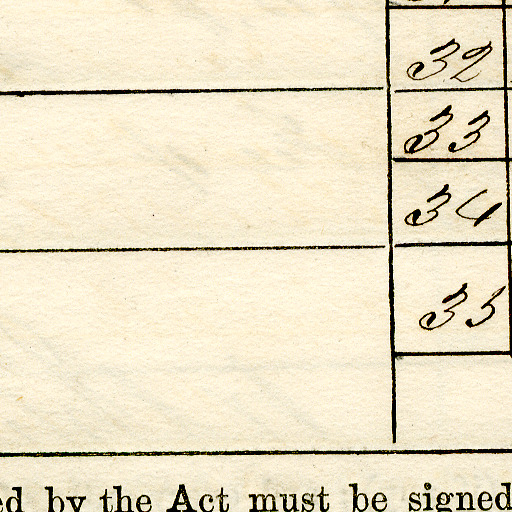 32
33
34
35
ed by the Act must be signed